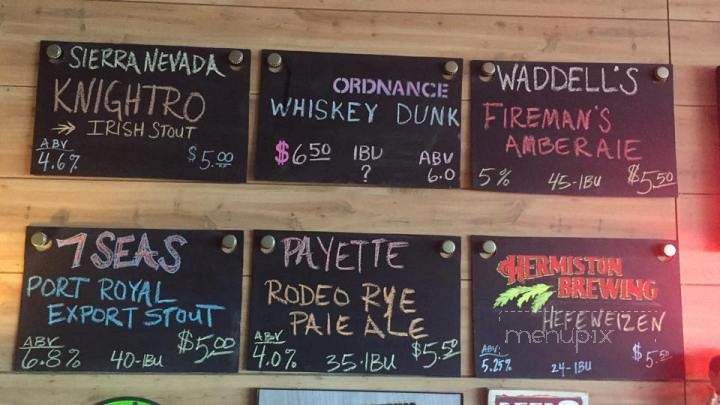 SIERRA NEVADA
KNIGHTRO
IRISH STOUT
ABV
4.6%
$5.00
ORDNANCE
WHISKEY DUNK
$6.50 IBU ABV
? 6.0
WADDELL'S
FIREMAN'S
AMBER AIE
5% 45-IBU $5.50
7 SEAS
PORT ROYAL
EXPORT STOUT
ABV
6.8% 40-IBU $5.00
PAYETTE
RODEO RYE
PAIE ALE
ABV
4.0% 35-IBU $5.50
HERMISTON
BREWING
HEFEWEIZEN
menupix
ABV:
5.25% 24-IBU $5.50